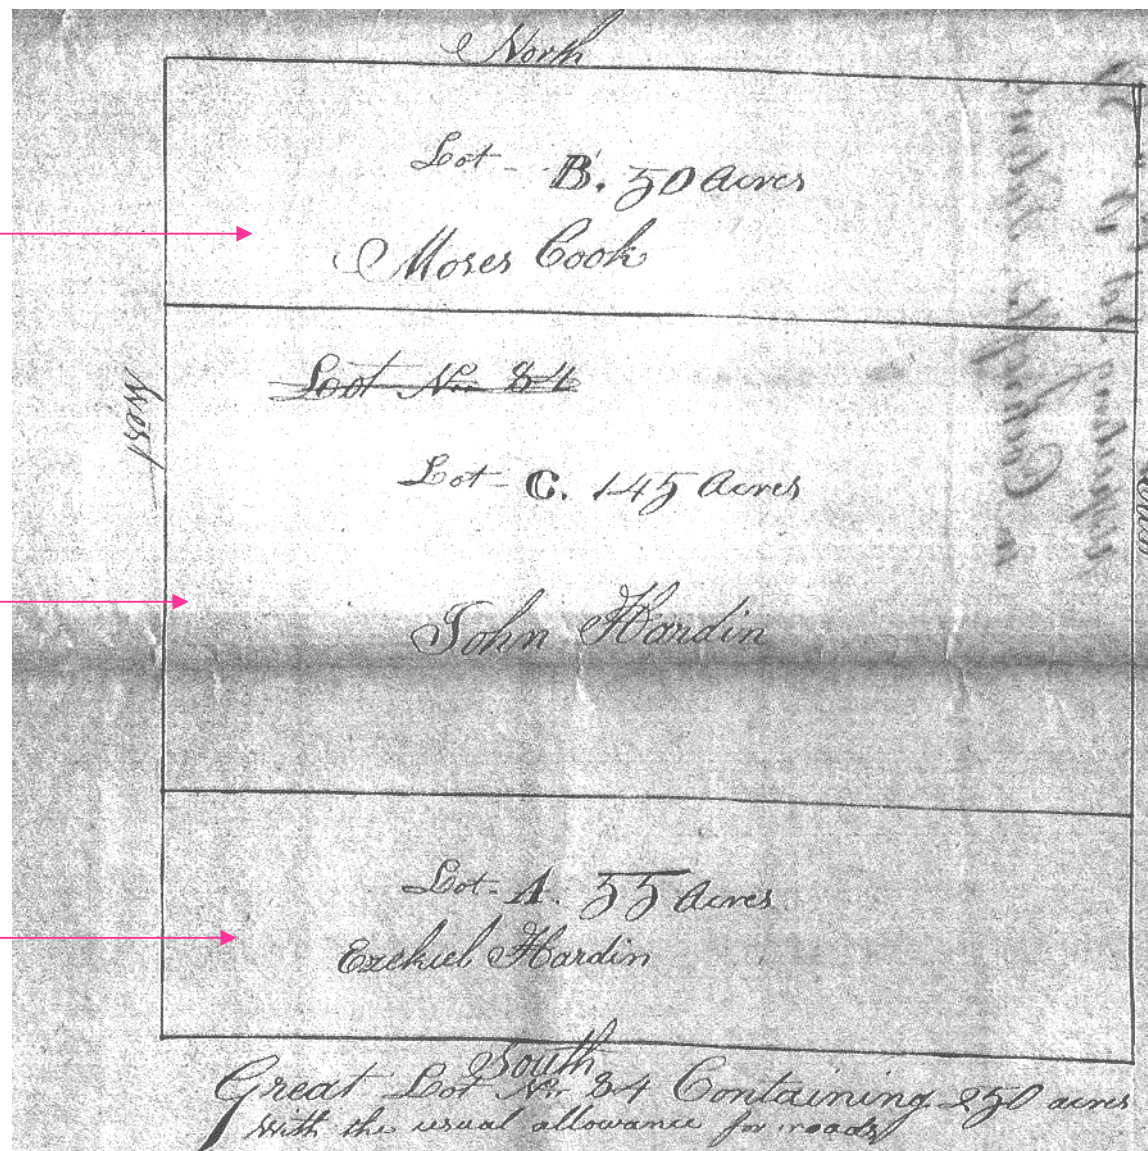 North
Lot - B. 50 acres
Moses Cook
Lot No. 84
West
Lot - C. 145 acres
John Hardin
Lot - A. 55 acres
Ezekiel Hardin
South
Great Lot No. 84 Containing 250 acres
with the usual allowance for roads